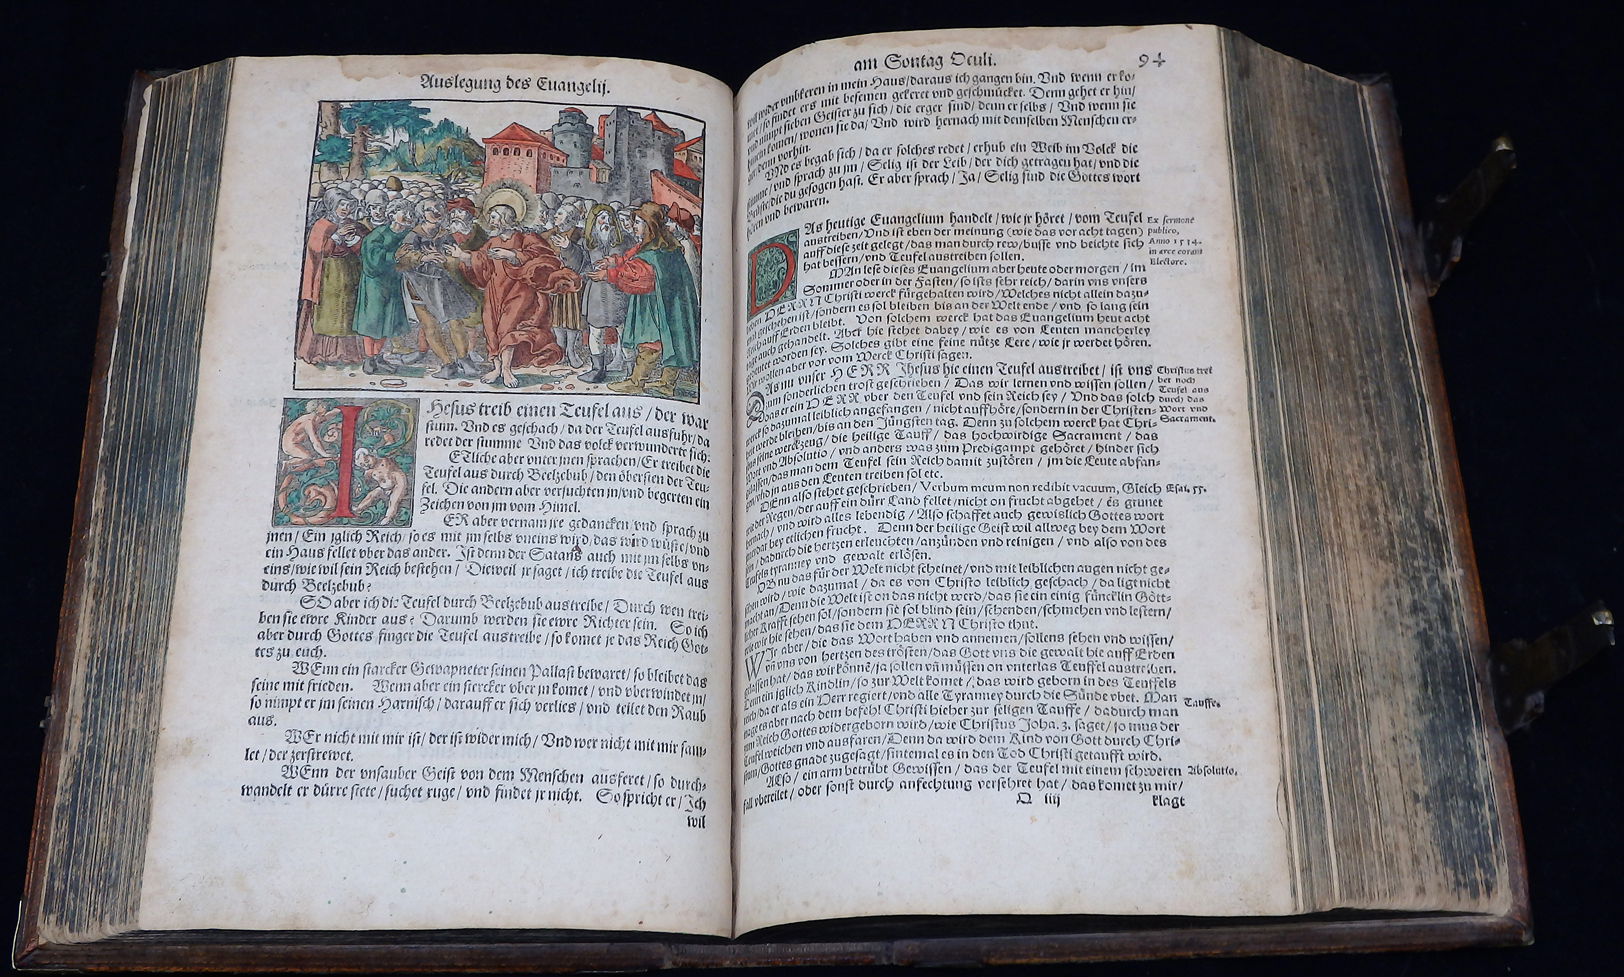 Auslegung des Euangelij.
IHesus treib einen Teufel aus / der war
stum. Vnd es geschach / da der Teufel ausfuhr / da
redet der stumme Vnd das volck verwunderte sich.
ETliche aber vnter jnen sprachen / Er treibet die
Teufel aus durch Beelzebub / den öbersten der Teu-
fel. Die andern aber versuchten jn / vnd begerten ein
Zeichen von jm vom Himel.
ER aber vernam jre gedancken / vnd sprach zu
jnen / Ein jglich Reich / so es mit jm selbs vneins wird / das wird wüste / vnd
ein Haus fellet vber das ander. Ist denn der Satans auch mit jm selbs vn-
eins / wie wil sein Reich bestehen / Dieweil jr saget / ich treibe die Teufel aus
durch Beelzebub?
SO aber ich die Teufel durch Beelzebub austreibe / Durch wen trei-
ben sie ewre Kinder aus? Darumb werden sie ewre Richter sein. So ich
aber durch Gottes finger die Teufel austreibe / so komet je das Reich Got-
tes zu euch.
WEnn ein starcker Gewapneter seinen Pallast bewaret / so bleibet das
seine mit frieden. Wenn aber ein stercker vber jn komet / vnd vberwindet jn /
so nimpt er jm seinen Harnisch / darauff er sich verlies / vnd teilet den Raub
aus.
WEr nicht mit mir ist / der ist wider mich / Vnd wer nicht mit mir sam-
let / der zerstrewet.
WEnn der vnsauber Geist von dem Menschen ausferet / so durch-
wandelt er dürre stete / suchet ruge / vnd findet jr nicht. So spricht er / Ich
wil
am Sontag Oculi. 94
wil wider vmbkeren in mein Haus / daraus ich gangen bin. Vnd wenn er ko-
met / so findet ers mit besemen gekeret vnd geschmücket. Denn gehet er hin /
vnd nimpt sieben Geister zu sich / die erger sind / denn er selbs / Vnd wenn sie
hinein komen / wonen sie da / Vnd wird hernach mit demselben Menschen er-
ger / denn vorhin.
VNd es begab sich / da er solches redet / erhub ein Weib im Volck die
stimme / vnd sprach zu jm / Selig ist der Leib / der dich getragen hat / vnd die
Brüste / die du gesogen hast. Er aber sprach / Ja / Selig sind die Gottes wort
hören vnd bewaren.
DAs heutige Euangelium handelt / wie jr höret / vom Teufel
austreiben / Vnd ist eben der meinung (wie das vor acht tagen)
auff diese zeit gelegt / das man durch rew / busse vnd beichte sich
hat bessern / vnd Teufel austreiben sollen.
Ex sermone
publico,
Anno 1534.
in arce coram
Electore.
MAn lese dieses Euangelium aber heute oder morgen / im
Sommer oder in der Fasten / so ists sehr reich / darin vns vnsers
lieben HERRN Christi werck fürgehalten wird / Welches nicht allein dazu-
mal geschehen ist / sondern es sol bleiben bis an der Welt ende / vnd so lang sein
Reich auff Erden bleibt. Von solchem werck hat das Euangelium heut acht
tage auch gehandelt. Aber hie stehet dabey / wie es von Leuten mancherley
gedeutet worden sey. Solches gibt eine feine nütze Lere / wie jr werdet hören.
Wir wollen aber vor vom Werck Christi sagen.
DAs nu vnser HERR Jhesus hie einen Teufel austreibet / ist vns
zum sonderlichen trost geschrieben / Das wir lernen vnd wissen sollen /
das er ein HERR vber den Teufel vnd sein Reich sey / Vnd das solch
werck so dazumal leiblich angefangen / nicht auffhöre / sondern in der Christen-
heit werde bleiben / bis an den Jüngsten tag. Denn zu solchem werck hat Chri-
stus seine werckzeug / die heilige Tauff / das hochwirdige Sacrament / das
Wort vnd Absolutio / vnd anders was zum Predigampt gehöret / hinder sich
gelassen / das man dem Teufel sein Reich damit zustören / jm die Leute abfan-
gen / vnd jn aus den Leuten treiben sol etc.
Christus trei
bet noch
Teufel aus
durch das
Wort vnd
Sacrament.
DEnn also stehet geschrieben / Verbum meum non redibit vacuum, Gleich
wie der Regen / der auff ein dürr Land fellet / nicht on frucht abgehet / es grunet
hernach / vnd wird alles lebendig / Also schaffet auch gewislich Gottes wort
jmerdar bey etlichen frucht. Denn der heilige Geist wil allweg bey dem Wort
sein / dadurch die hertzen erleuchten / anzünden vnd reinigen / vnd also von des
Teufels tyranney vnd gewalt erlösen.
Esai. 55.
OB nu das für der Welt nicht scheinet / vnd mit leiblichen augen nicht ge-
sehen wird / wie dazumal / da es von Christo leiblich geschach / da ligt nicht
macht an / Denn die Welt ist on das nicht werd / das sie ein einig füncklin Gött-
licher Krafft sehen sol / sondern sie sol blind sein / schenden / schmehen vnd lestern /
wie wir hie sehen / das sie dem HERRN Christo thut.
WIr aber / die das Wort haben vnd annemen / sollens sehen vnd wissen /
vñ vns von hertzen des trösten / das Gott vns die gewalt hie auff Erden
gelassen hat / das wir könnẽ / ja sollen vñ müssen on vnterlas Teuffel austreiben.
Denn ein jglich Kindlin / so zur Welt komet / das wird geborn in des Teuffels
reich / da er als ein Herr regiert / vnd alle Tyranney durch die Sünde vbet. Man
trage es aber nach dem befehl Christi hieher zur seligen Tauffe / dadurch man
zum Reich Gottes widergeborn wird / wie Christus Joha. 3. saget / so mus der
Teufel weichen vnd ausfaren / Denn da wird dem Kind von Gott durch Chri-
stum / Gottes gnade zugesagt / sintemal es in den Tod Christi getaufft wird.
Tauffe.
ALso / ein arm betrübt Gewissen / das der Teufel mit einem schweren
fall vbereilet / oder sonst durch anfechtung versehret hat / das komet zu mir /
Absolutio.
Q iiij klagt